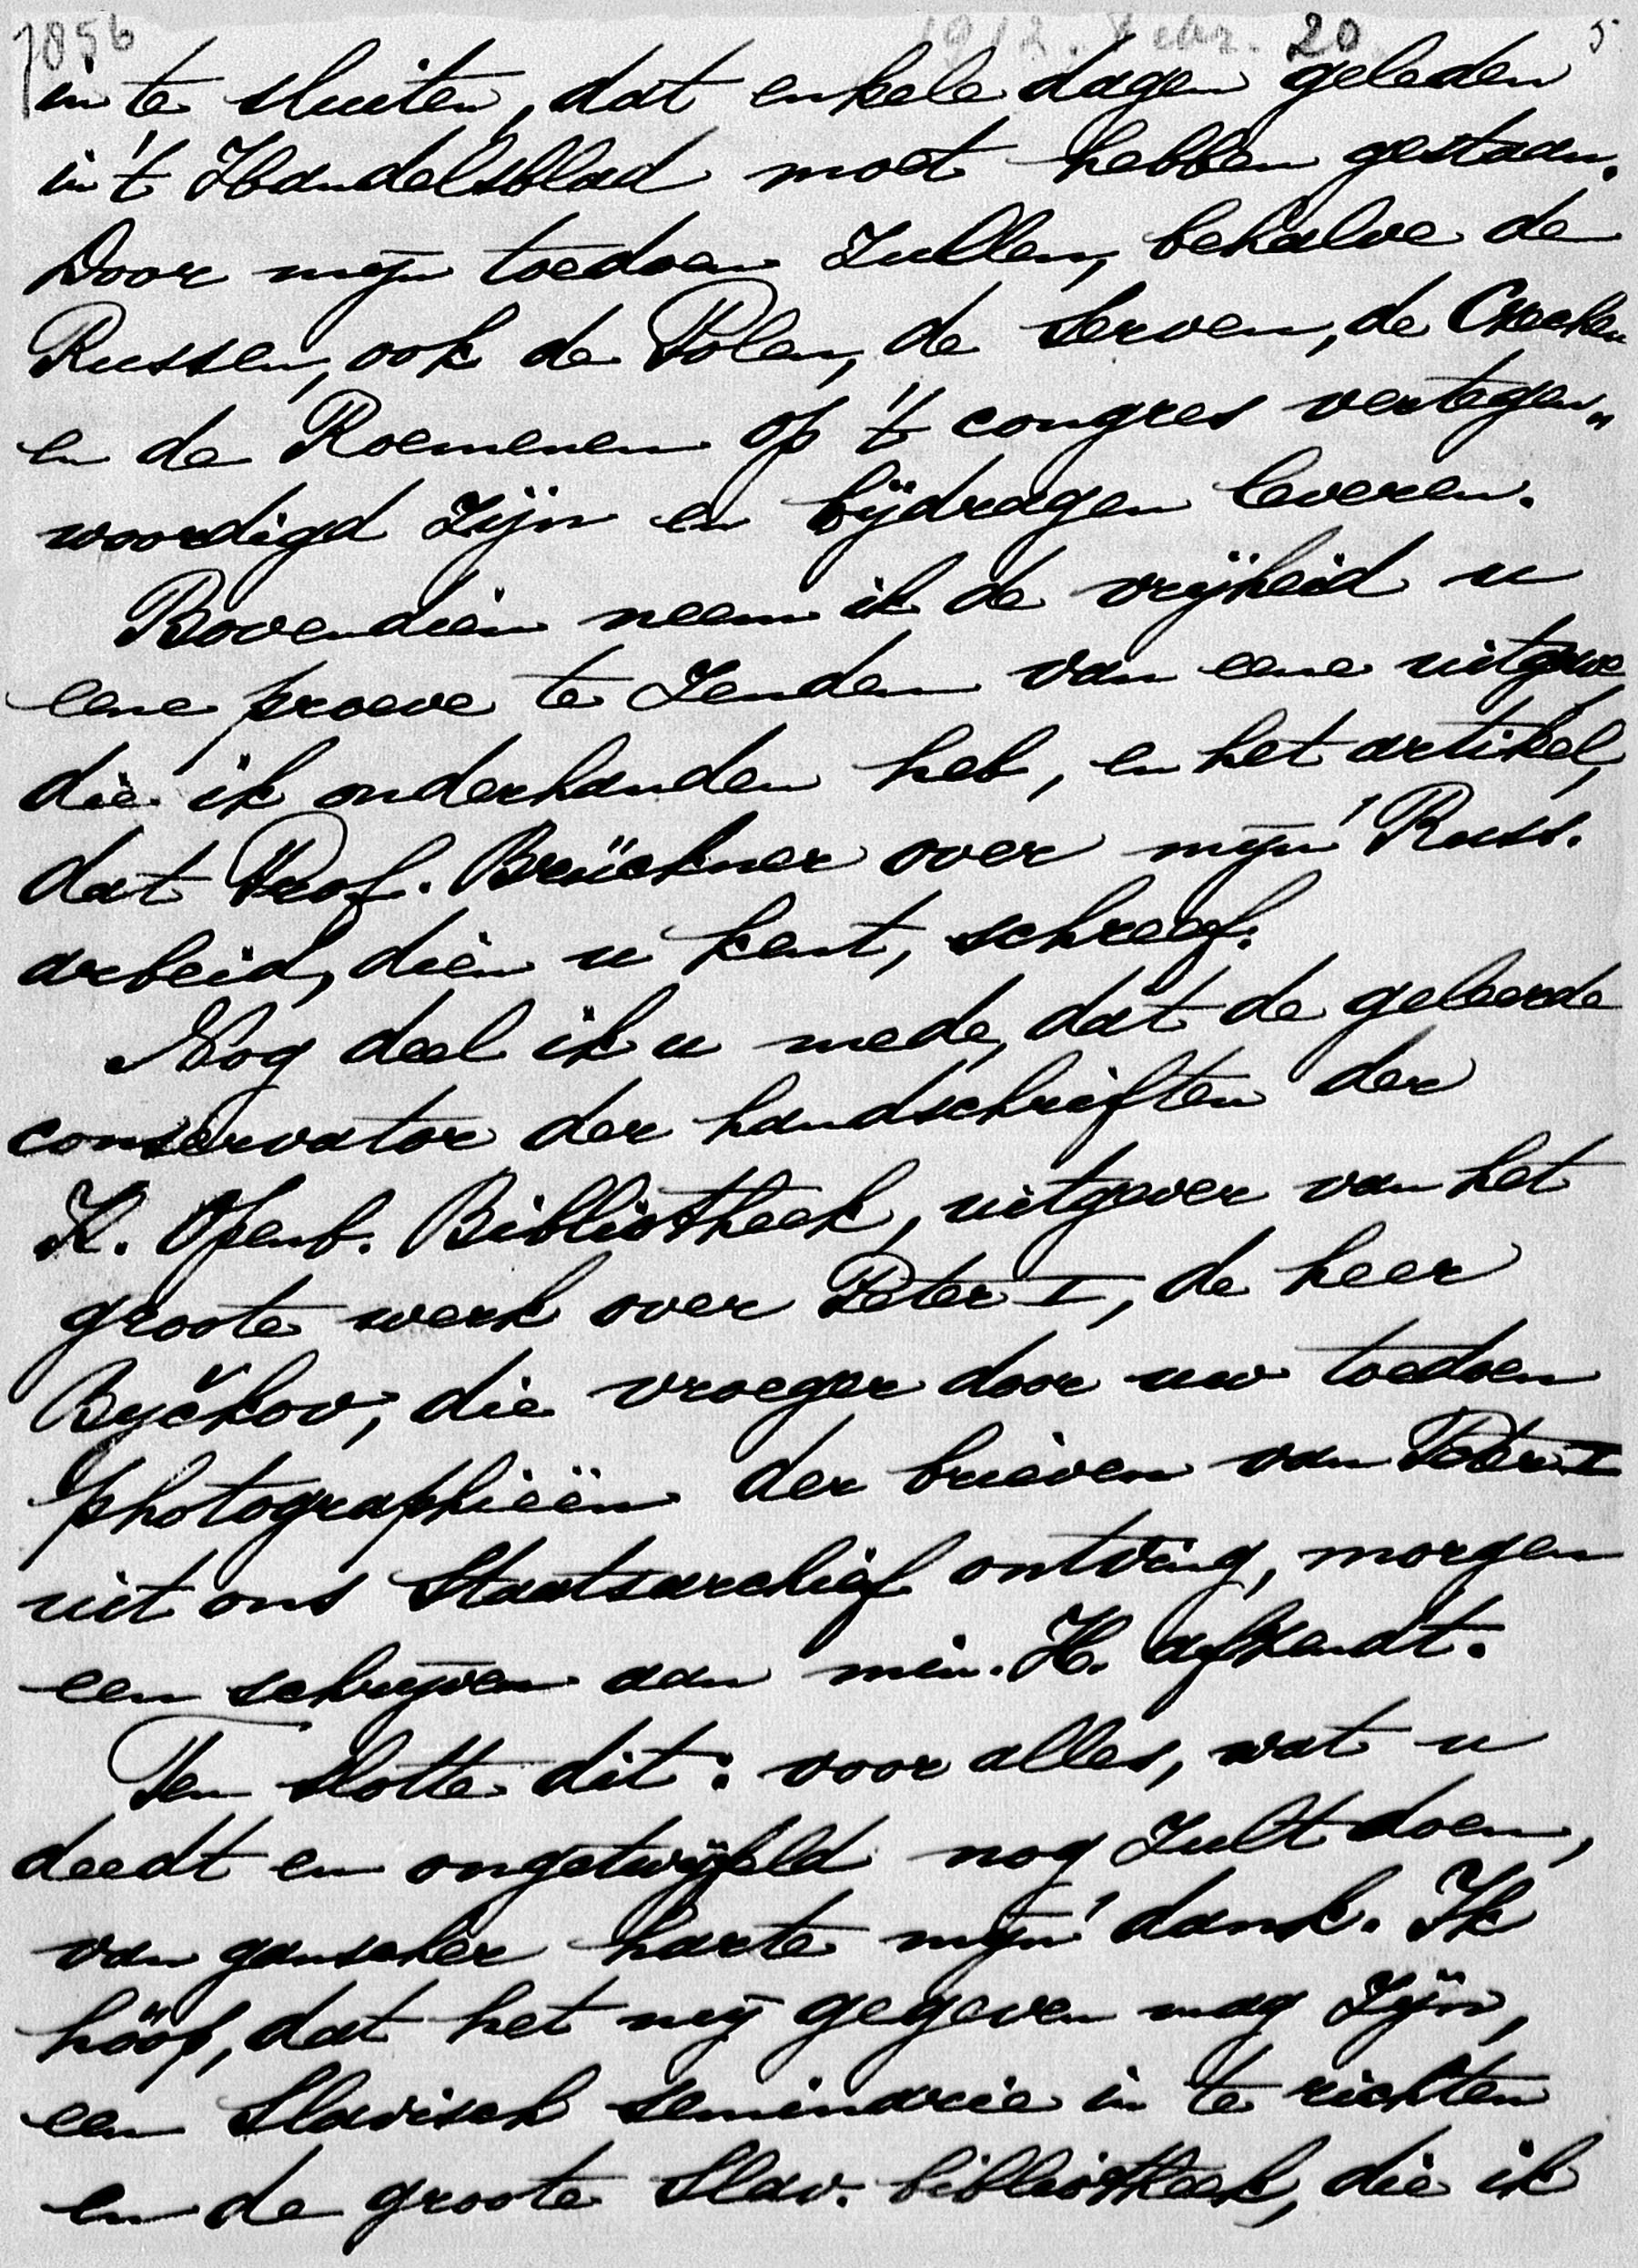 1856 1912. Febr. 20. 5
in te sluiten, dat enkele dagen geleden
in 't Handelsblad moet hebben gestaan.
Door mijn toedoen zullen, behalve de
Russen, ook de Polen, de Serven, de Czechen
en de Roemenen op 't congres vertegen„
woordigd zijn en bijdragen leveren.
Bovendien neem ik de vrijheid u
eene proeve te zenden van eene uitgave
die ik onderhanden heb, en het artikel,
dat Prof. Brückner over mijn' Russ.
arbeid, dien u kent, schreef.
Nog deel ik u mede, dat de geleerde
conservator der handschriften der
K. Openb. Bibliotheek, uitgever van het
groote werk over Peter I, de heer
Byčkov, die vroeger door uw toedoen
photographieën der brieven van Peter I
uit ons Staatsarchief ontving, morgen
een schrijven aan min. H. afzendt.
Ten slotte dit: voor alles, wat u
deedt en ongetwijfeld nog zult doen,
van ganscher harte mijn' dank. Ik
hoop, dat het mij gegeven mag zijn,
een Slavisch seminarie in te richten
en de groote Slav. bibliotheek, die ik